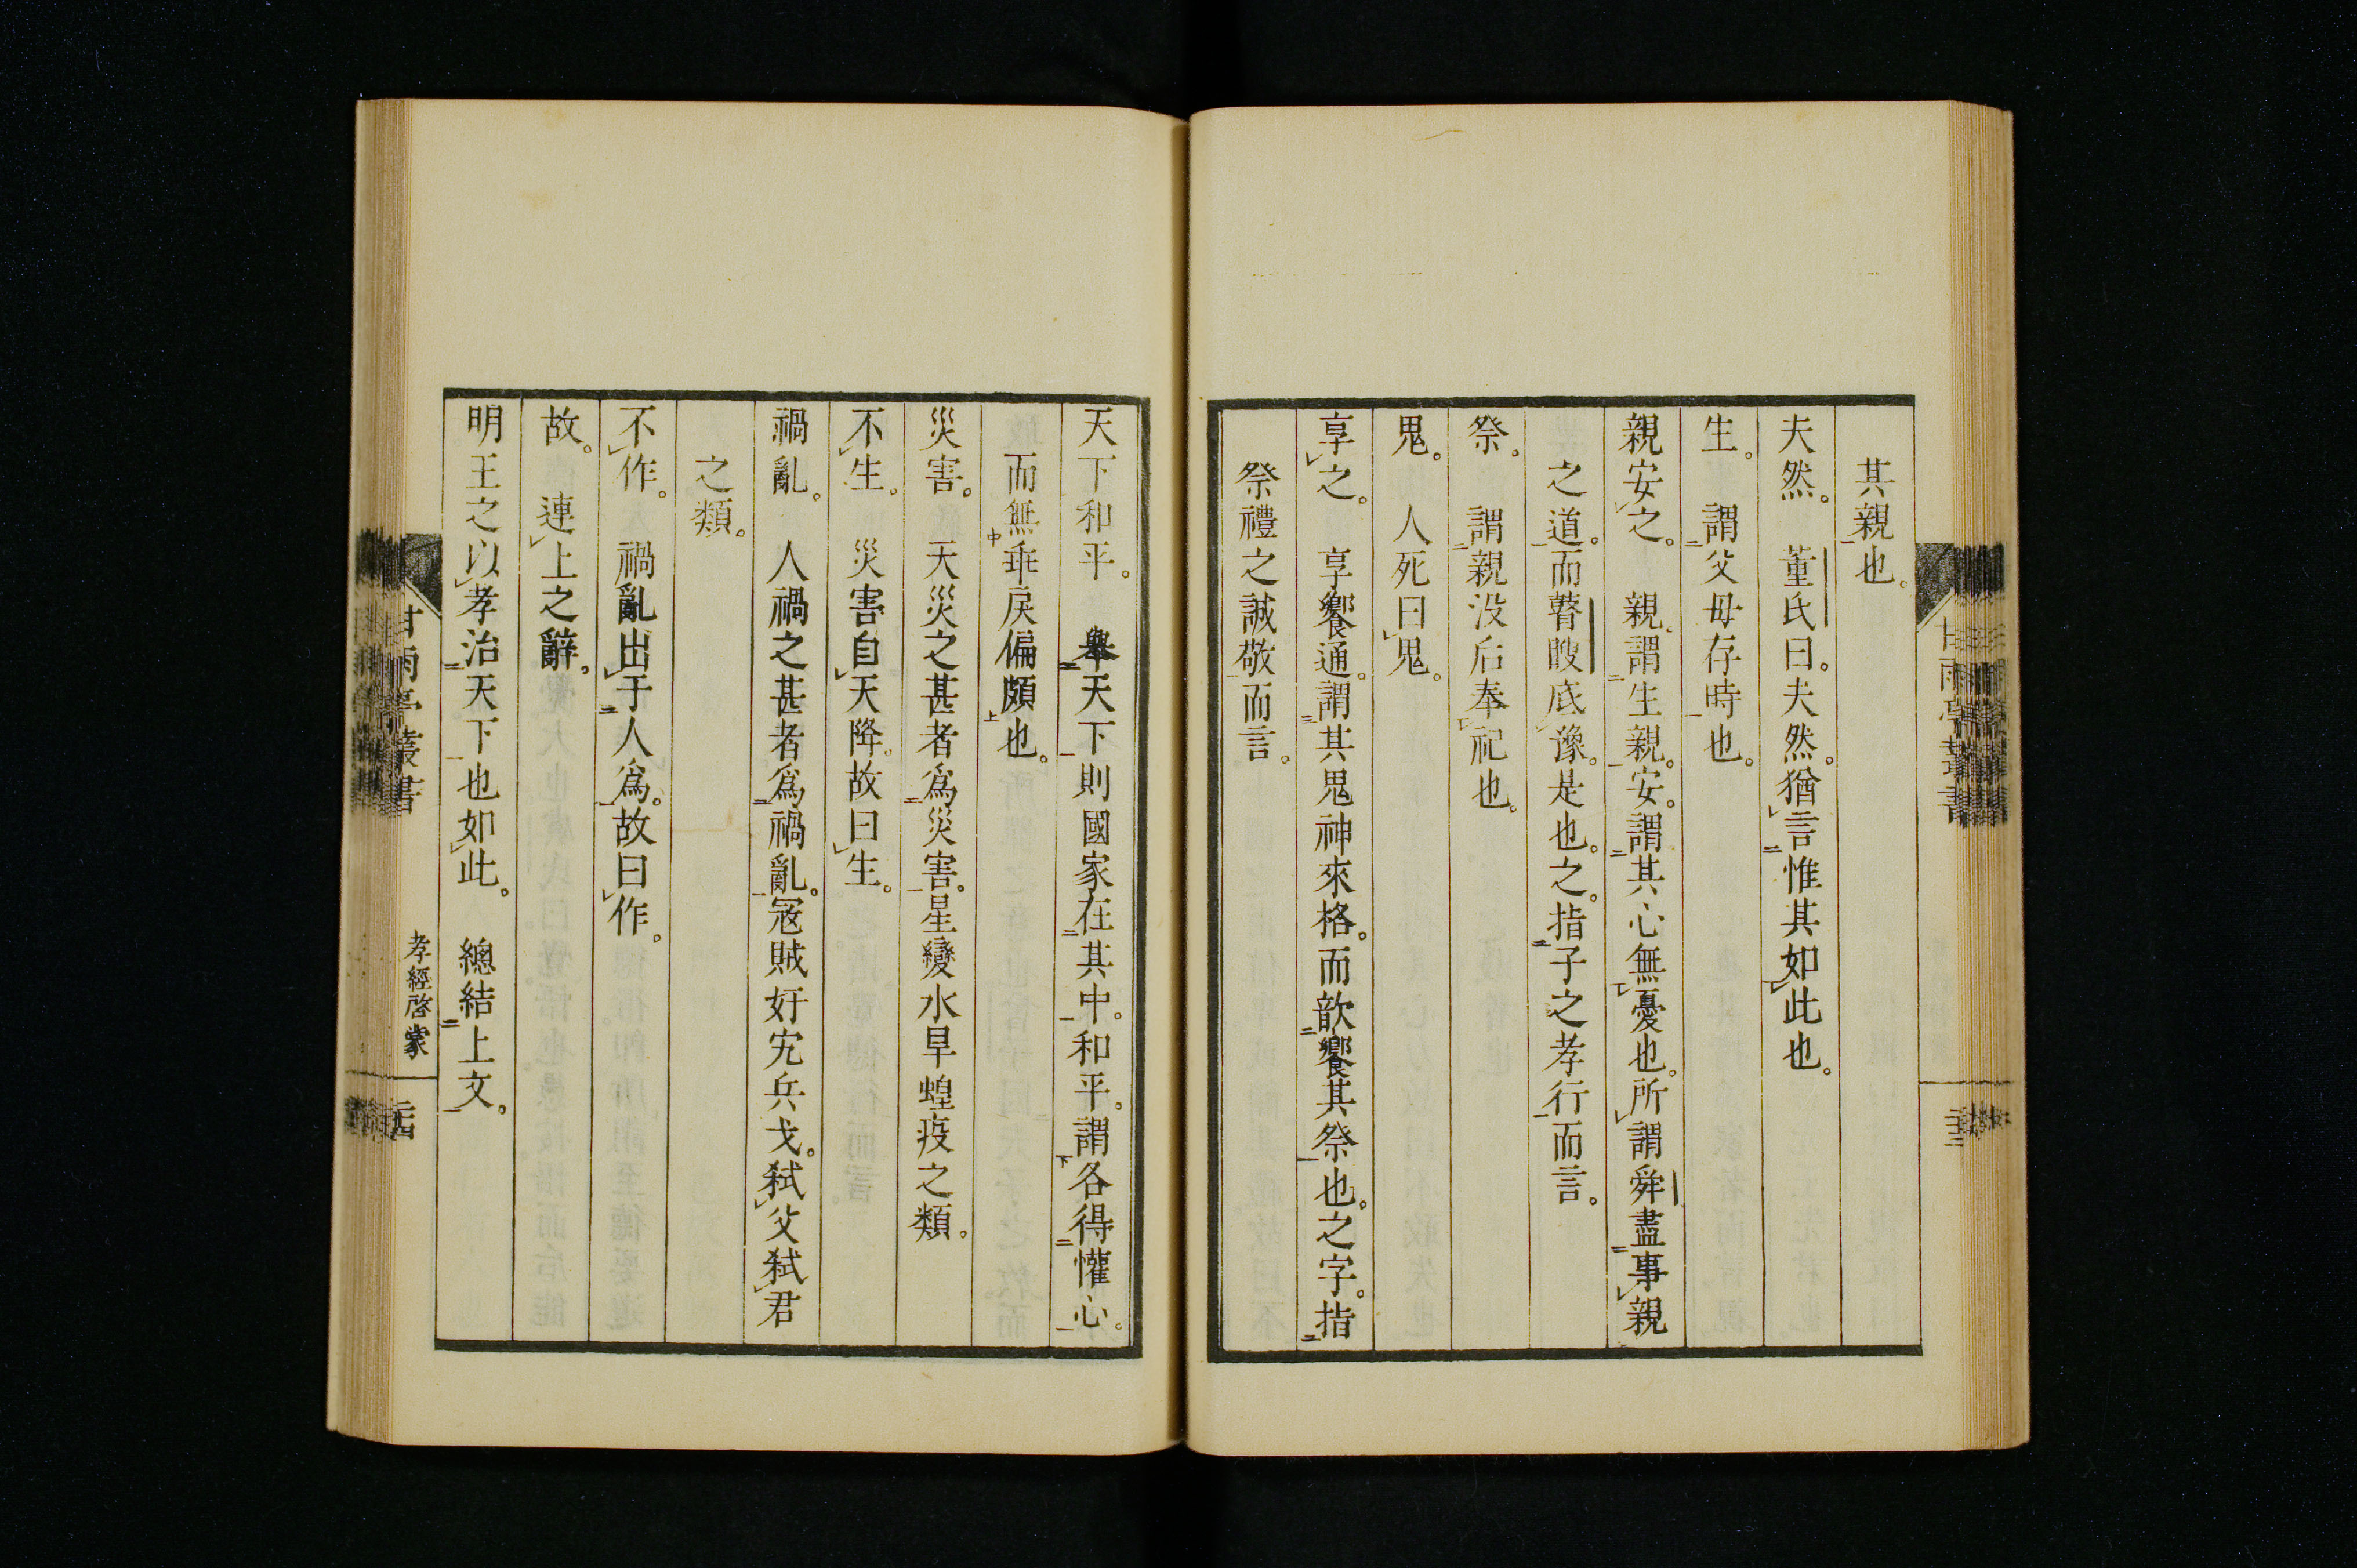 其親也。
夫然。　董氏曰。夫然。猶言惟其如此也。
生。　謂父母存時也。
親安之。　親。謂生親。安。謂其心無憂也。所謂舜盡事親
之道。而瞽瞍底豫。是也。之。指子之孝行而言。
祭。　謂親没后奉祀也。
鬼。　人死曰鬼。
享之。　享饗通。謂其鬼神來格。而歆饗其祭也。之字。指
祭禮之誠敬而言。
天下和平。　舉天下則國家在其中。和平。謂各得懽心。
而無乖戻偏頗也。
災害。　天災之甚者爲災害。星變水旱蝗疫之類。
不生。　災害自天降。故曰生。
禍亂。　人禍之甚者爲禍亂。寇賊奸宄兵戈。弑父弑君
之類。
不作。　禍亂出于人爲。故曰作。
故。　連上之辭。
明王之以孝治天下也如此。　總結上文。
甘雨亭叢書　孝經啓蒙　二十四